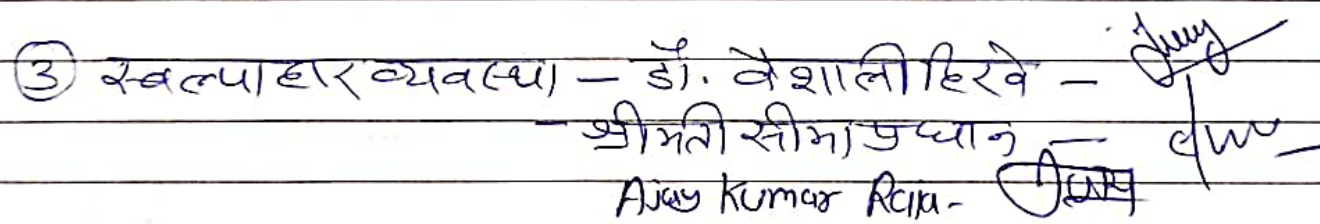 ③ स्वल्पाहार व्यवस्था - डॉ. वैशाली हिरवे -
- श्रीमती सीमा प्रधान -
Ajay Kumar Raja-